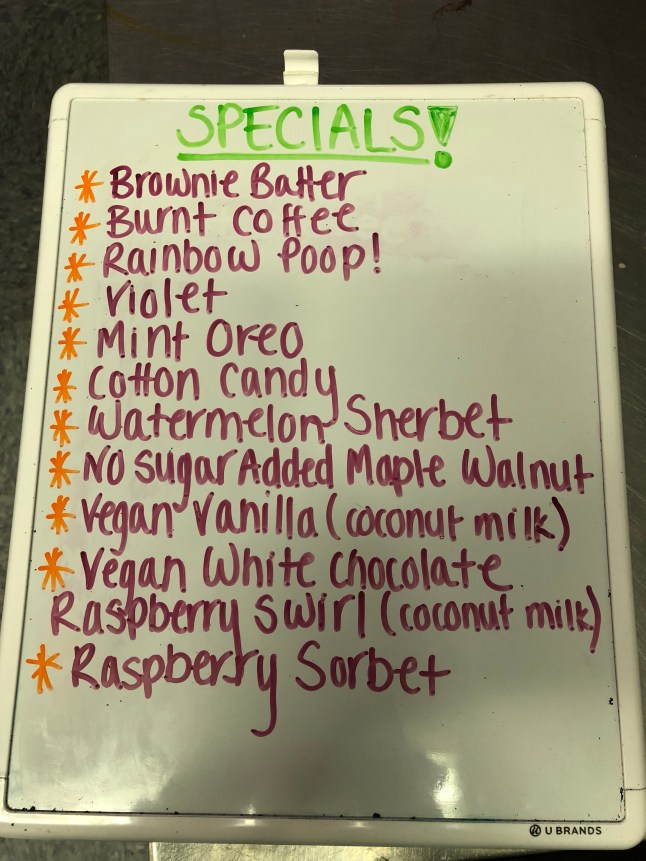 SPECIALS!
* Brownie Batter
* Burnt Coffee
* Rainbow Poop!
* Violet
* Mint Oreo
* Cotton Candy
* Watermelon Sherbet
* No Sugar Added Maple Walnut
* Vegan Vanilla (coconut milk)
* Vegan White Chocolate
Raspberry Swirl (coconut milk)
* Raspberry Sorbet
U BRANDS